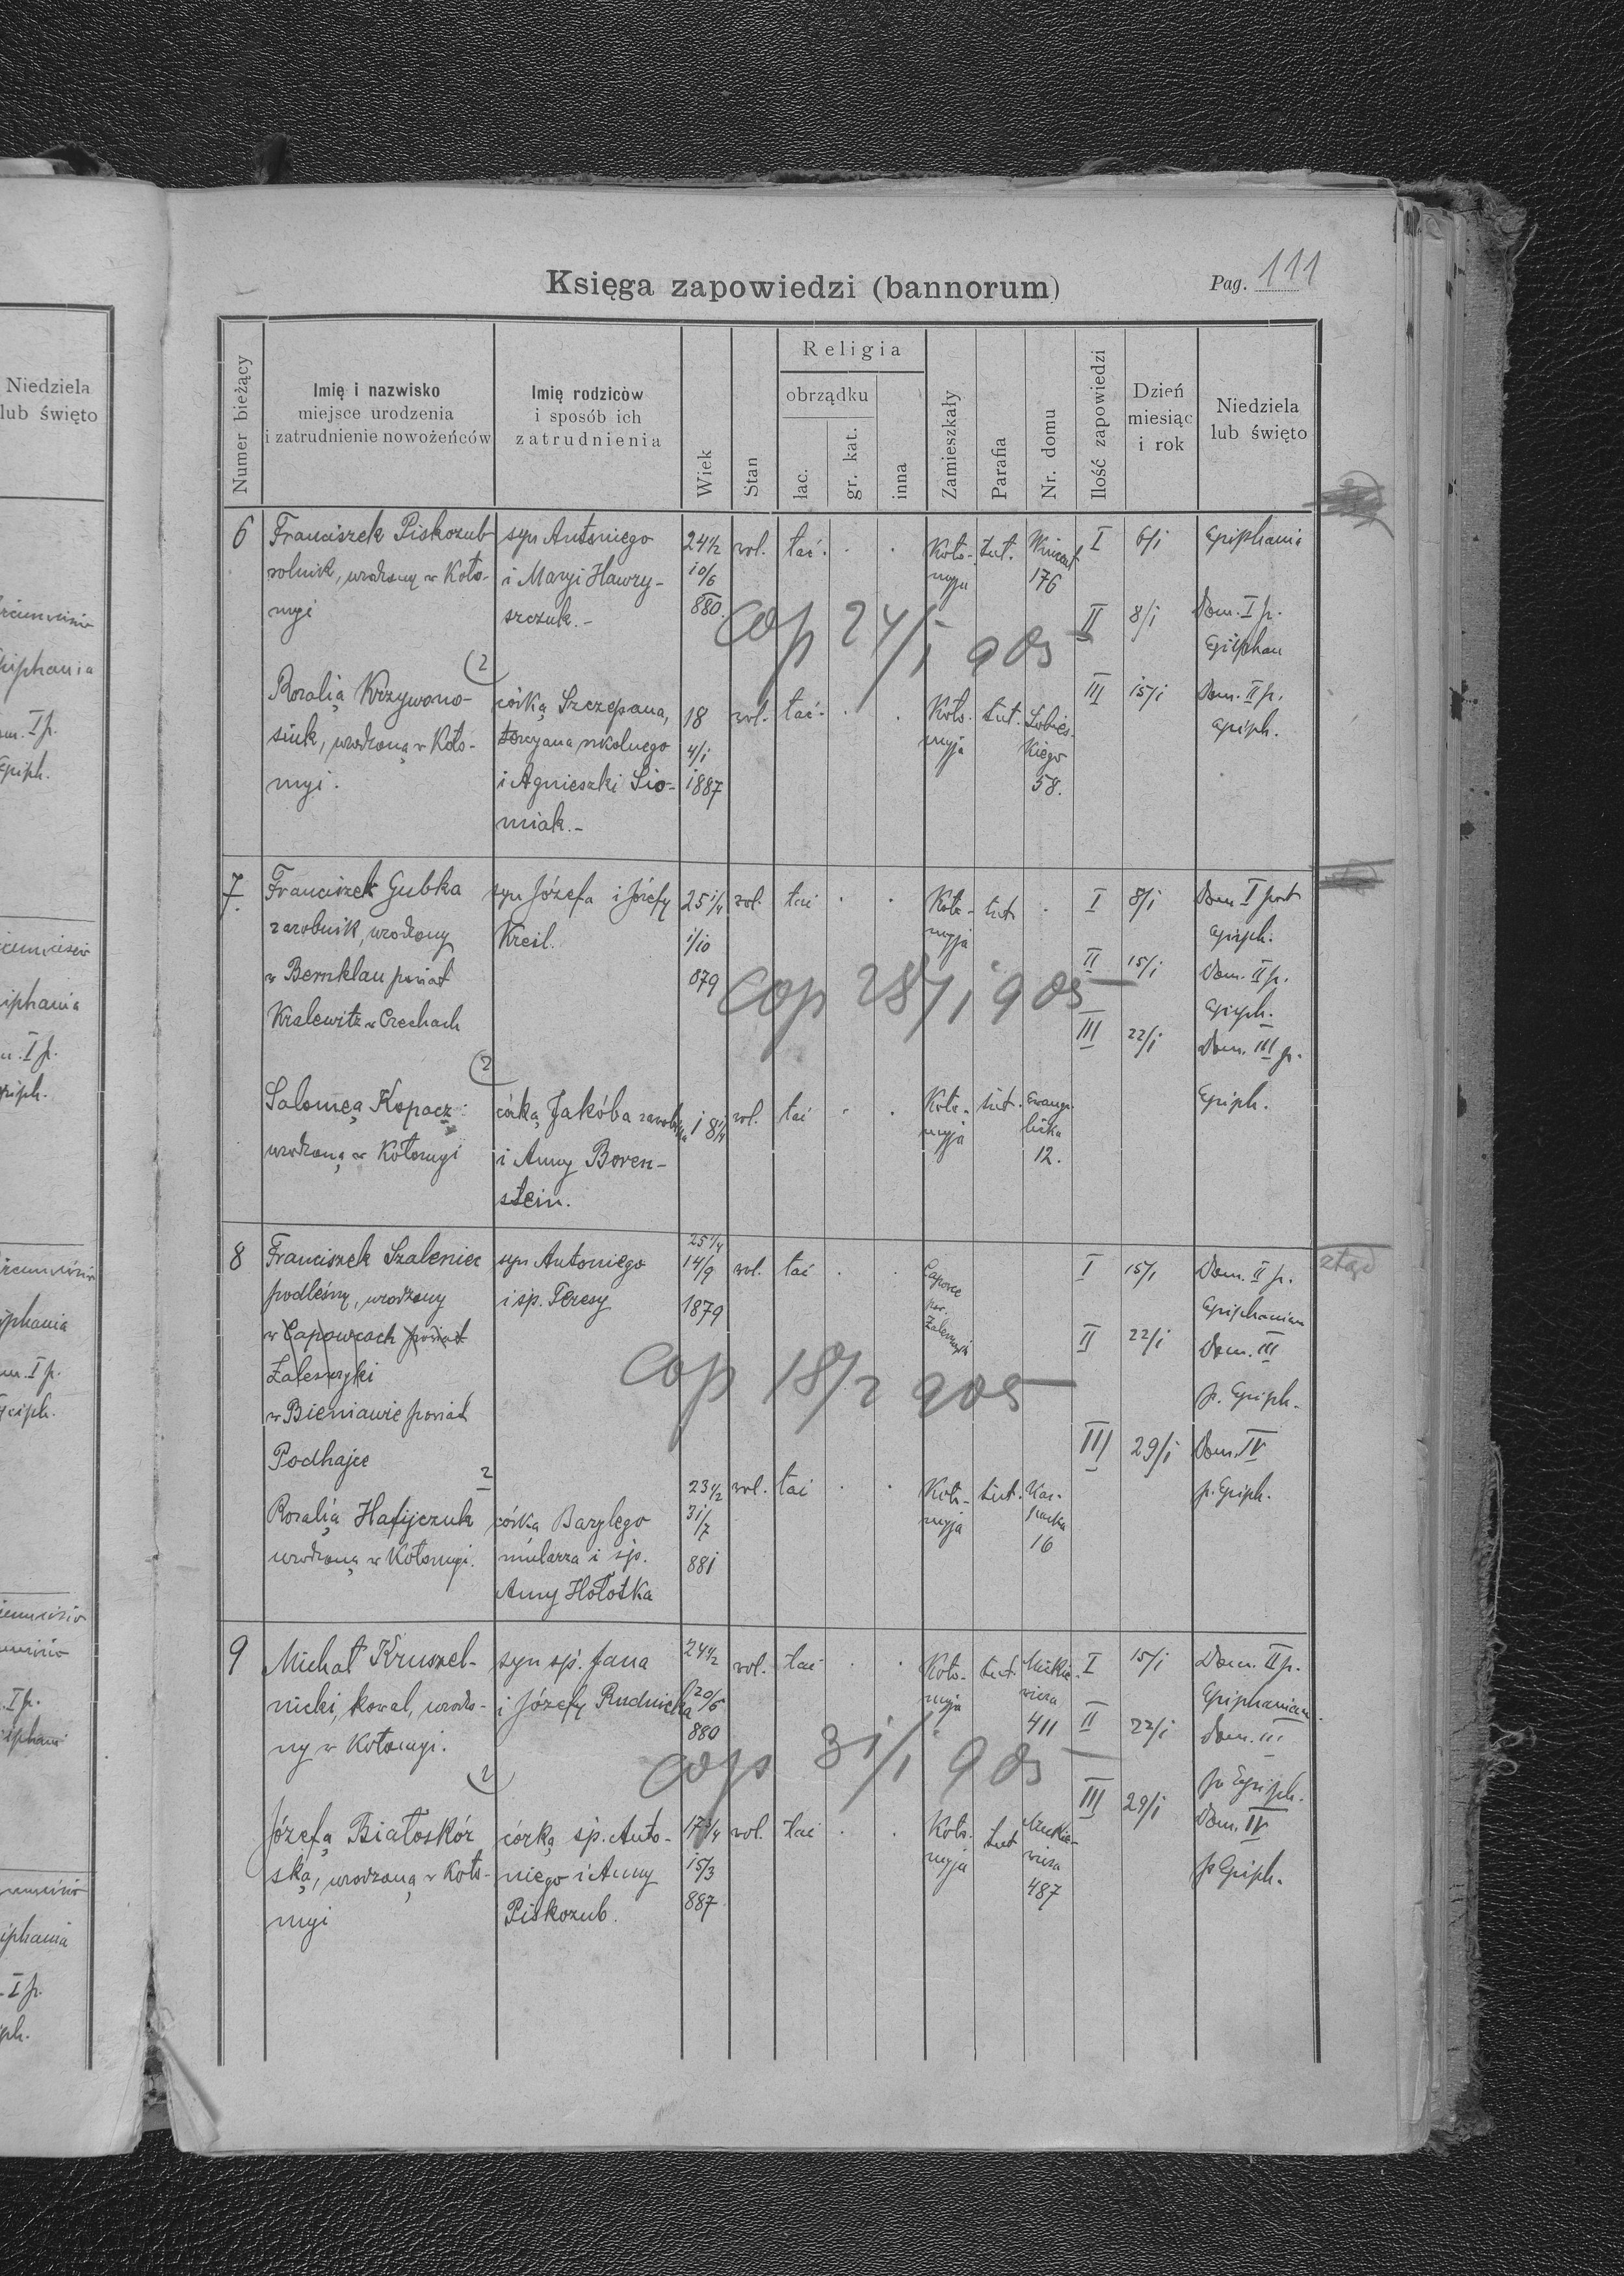 Księga zapowiedzi (bannorum)
Pag. 111
Numer bieżący
Imię i nazwisko
miejsce urodzenia
i zatrudnienie nowożeńców
Imię rodziców
i sposób ich
zatrudnienia
Wiek
Stan
Religia
obrządku
łac.
gr. kat.
inna
Zamieszkały
Parafia
Nr. domu
Ilość zapowiedzi
Dzień
miesiąc
i rok
Niedziela
lub święto
6
Franciszek Piskozub
rolnik, urodzony w Koło-
myi
syn Antoniego
i Maryi Hawry-
szczuk.-
24 1/2
10/6
880.
wol.
łać.
Koło-
myja
tut.
176
I
6/i
Epiphania
II
8/i
Dom. I p.
Epiphan
III
15/i
Dom. II p.
Epiph.
cop 24/i 905
(2
Rozalią Krzywono-
siuk, urodzoną w Koło-
myi.
córką Szczepana,
i Agnieszki Sio-
miak.-
18
4/i
1887
wol.
łać.
Koło-
myja
tut.
Sobies-
kiego
58.
7.
Franciszek Gubka
zarobnik, urodzony
w Bernklau powiat
Kralewitz w Czechach
syn Józefa i Józefy
Kreil.
25 1/4
1/10
879
wol.
łać
Koło-
myja
tut.
I
8/i
Dom I post
Epiph.
II
15/i
Dom. II p.
Epiph.
III
22/i
Dom. III p.
Epiph.
cop 28/i 905
(2
Salomeą Kopacz
urodzoną w Kołomyi
córką Jakóba
i Anny Boren-
stein.
18 1/4
wol.
łać
Koło-
myja
tut.
Ewange-
licka
12.
8
Franciszek Szaleniec
podleśny, urodzony
w Capowcach powiat
Zaleszczyki
w Bieniawie powiat
Podhajce
syn Antoniego
i sp. Teresy
25 1/4
14/9
1879
wol.
łać
Capowce
pow.
Zaleszczyki
I
15/i
Dom. II p.
Epiphaniam
II
22/i
Dom. III
p. Epiph.
III
29/i
Dom. IV
p. Epiph.
ztąd
cop 18/2 905
2
Rozalią Hafijczuk
urodzoną w Kołomyi.
córką Bazylego
mularza i sp.
Anny Hołotka
23 1/2
31/7
881
wol.
łać
Koło-
myja
tut.
Kar-
packa
16
9
Michał Kruszel-
nicki, kowal, urodzo-
ny w Kołomyi.
syn sp. Jana
i Józefy Rudnicka
24 1/2
20/5
880
wol.
łać
Koło-
myja
tut.
Mickie-
wicza
411
I
15/i
Dom. II p.
Epiphaniam.
II
22/i
Dom. III
p. Epiph.
III
29/i
Dom. IV
p. Epiph.
cop 31/i 905
2)
Józefą Białoskór
ską, urodzoną w Koło-
myi
córką sp. Anto-
niego i Anny
Piskozub.
17 3/4
15/3
887
wol.
łać
Koło-
myja
tut
Mickie-
wicza
487
Niedziela
lub święto